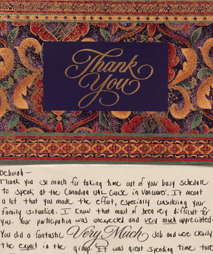 Thank
You
Deborah -
Thank you so much for taking time out of your busy schedule
to speak at the Canadian Utils Conf. in Vancouver. It meant
a lot that you made the effort, especially considering your
family situation. I know that must of been very difficult for
you. Your participation was unexpected and very much appreciated.
You did a fantastic Very Much job and were clearly
the expert in the group. It was great spending time that,